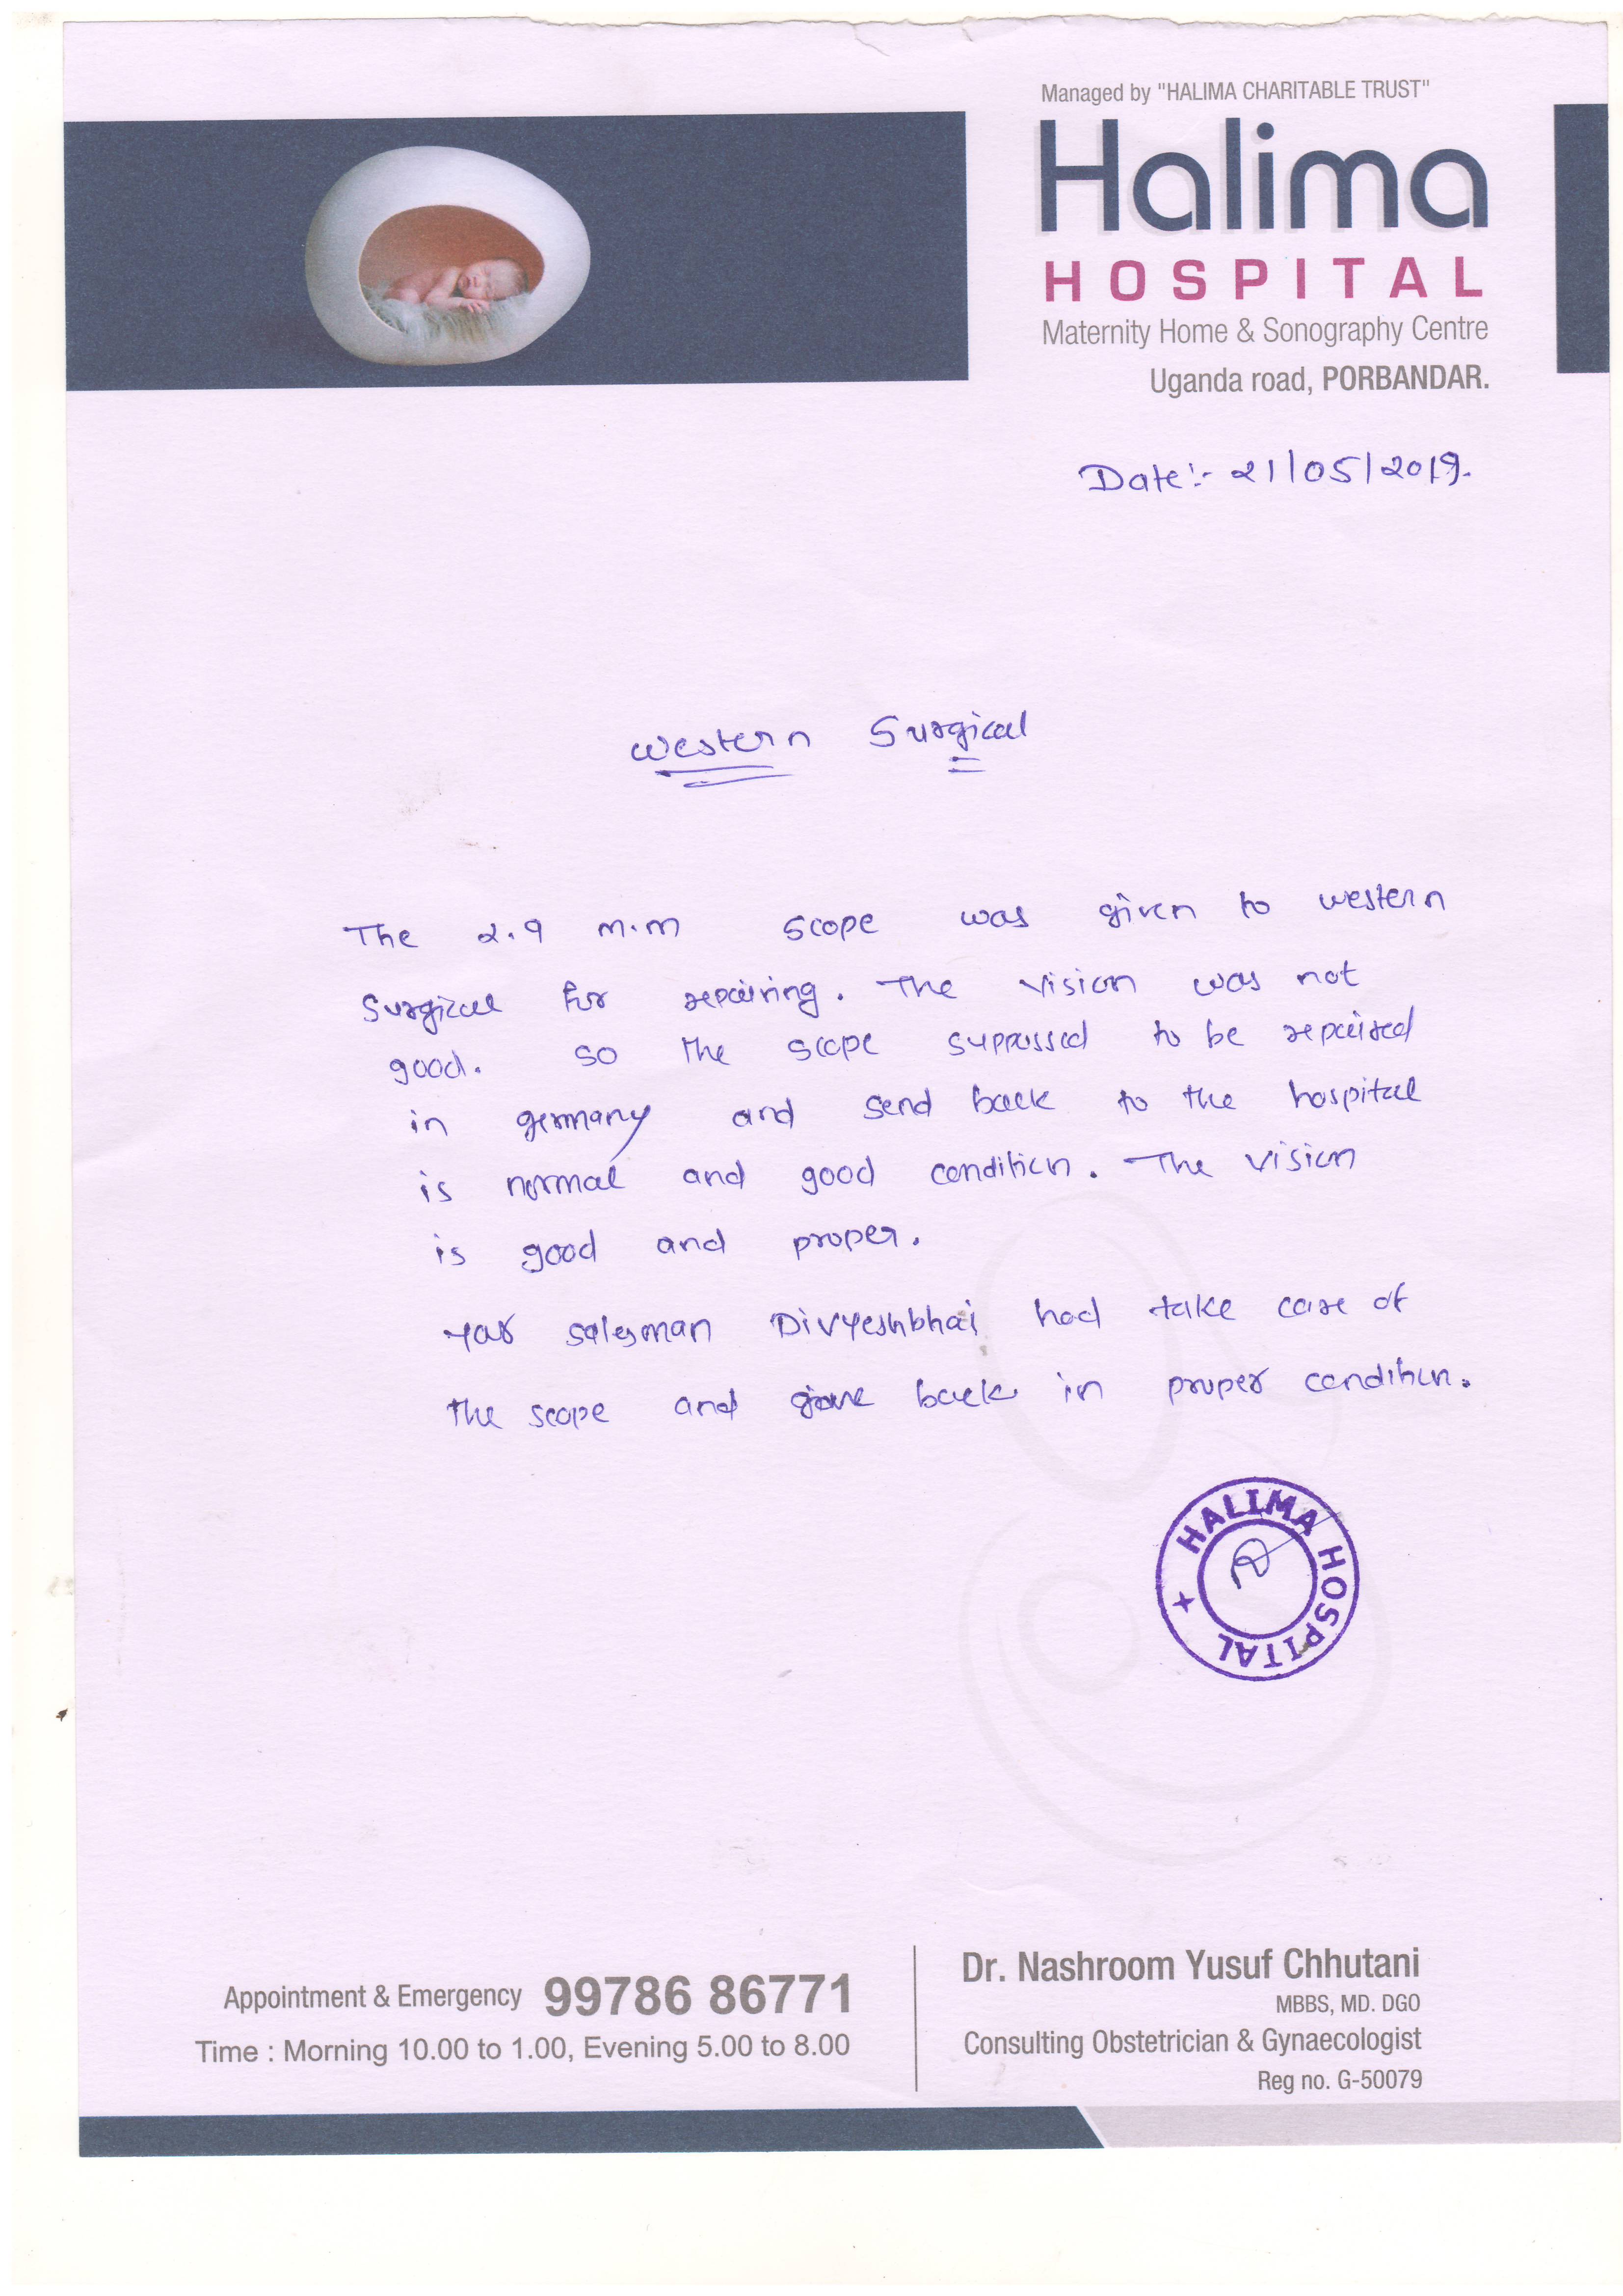 Managed by "HALIMA CHARITABLE TRUST"
Halima
HOSPITAL
Maternity Home & Sonography Centre
Uganda road, PORBANDAR.
Date:- 21/05/2019.
Western Surgical
The 2.9 m.m scope was given to western
Surgical for repairing. The vision was not
good. so the scope suppossed to be repaired
in germany and send back to the hospital
is normal and good condition. The vision
is good and proper.
salesman Divyeshbhai had take care of
the scope and gave back in proper condition.
HALIMA HOSPITAL +
Appointment & Emergency 99786 86771
Time : Morning 10.00 to 1.00, Evening 5.00 to 8.00
Dr. Nashroom Yusuf Chhutani
MBBS, MD. DGO
Consulting Obstetrician & Gynaecologist
Reg no. G-50079